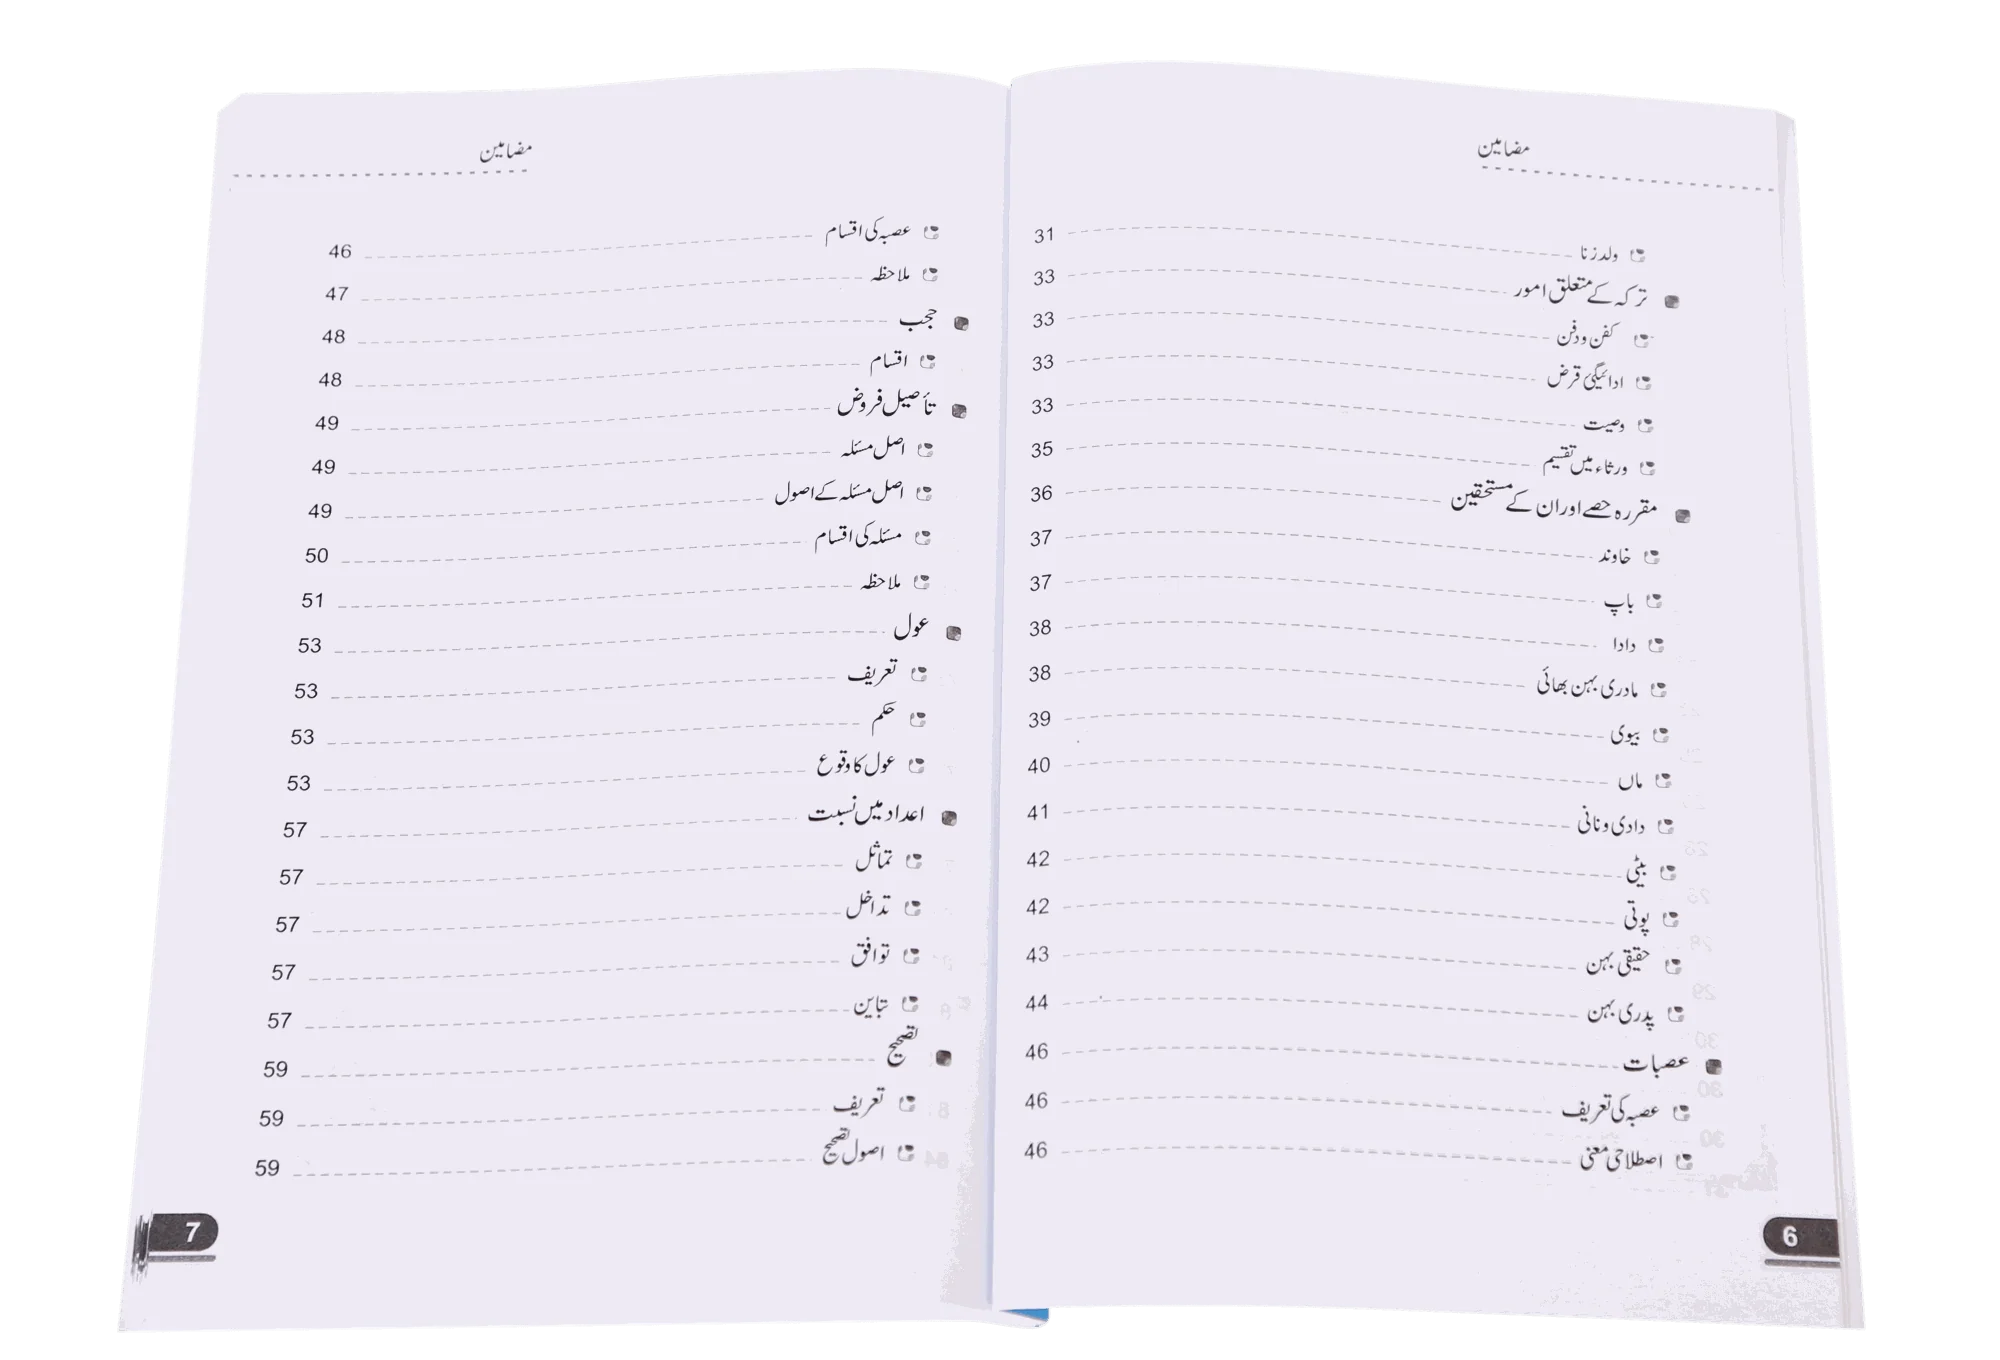 مضامین
ولد زنا 31
ترکہ کے متعلق امور 33
کفن و دفن 33
ادائیگئ قرض 33
وصیت 33
ورثاء میں تقسیم 35
مقررہ حصے اور ان کے مستحقین 36
خاوند 37
باپ 37
دادا 38
مادری بہن بھائی 38
بیوی 39
ماں 40
دادی و نانی 41
بیٹی 42
پوتی 42
حقیقی بہن 43
پدری بہن 44
عصبات 46
عصبہ کی تعریف 46
اصطلاحی معنی 46
6
مضامین
عصبہ کی اقسام 46
ملاحظہ 47
حجب 48
اقسام 48
تأصیل فروض 49
اصل مسئلہ 49
اصل مسئلہ کے اصول 49
مسئلہ کی اقسام 50
ملاحظہ 51
عول 53
تعریف 53
حکم 53
عول کا وقوع 53
اعداد میں نسبت 57
تماثل 57
تداخل 57
توافق 57
تباین 57
تصحیح 59
تعریف 59
اصول تصحیح 59
7